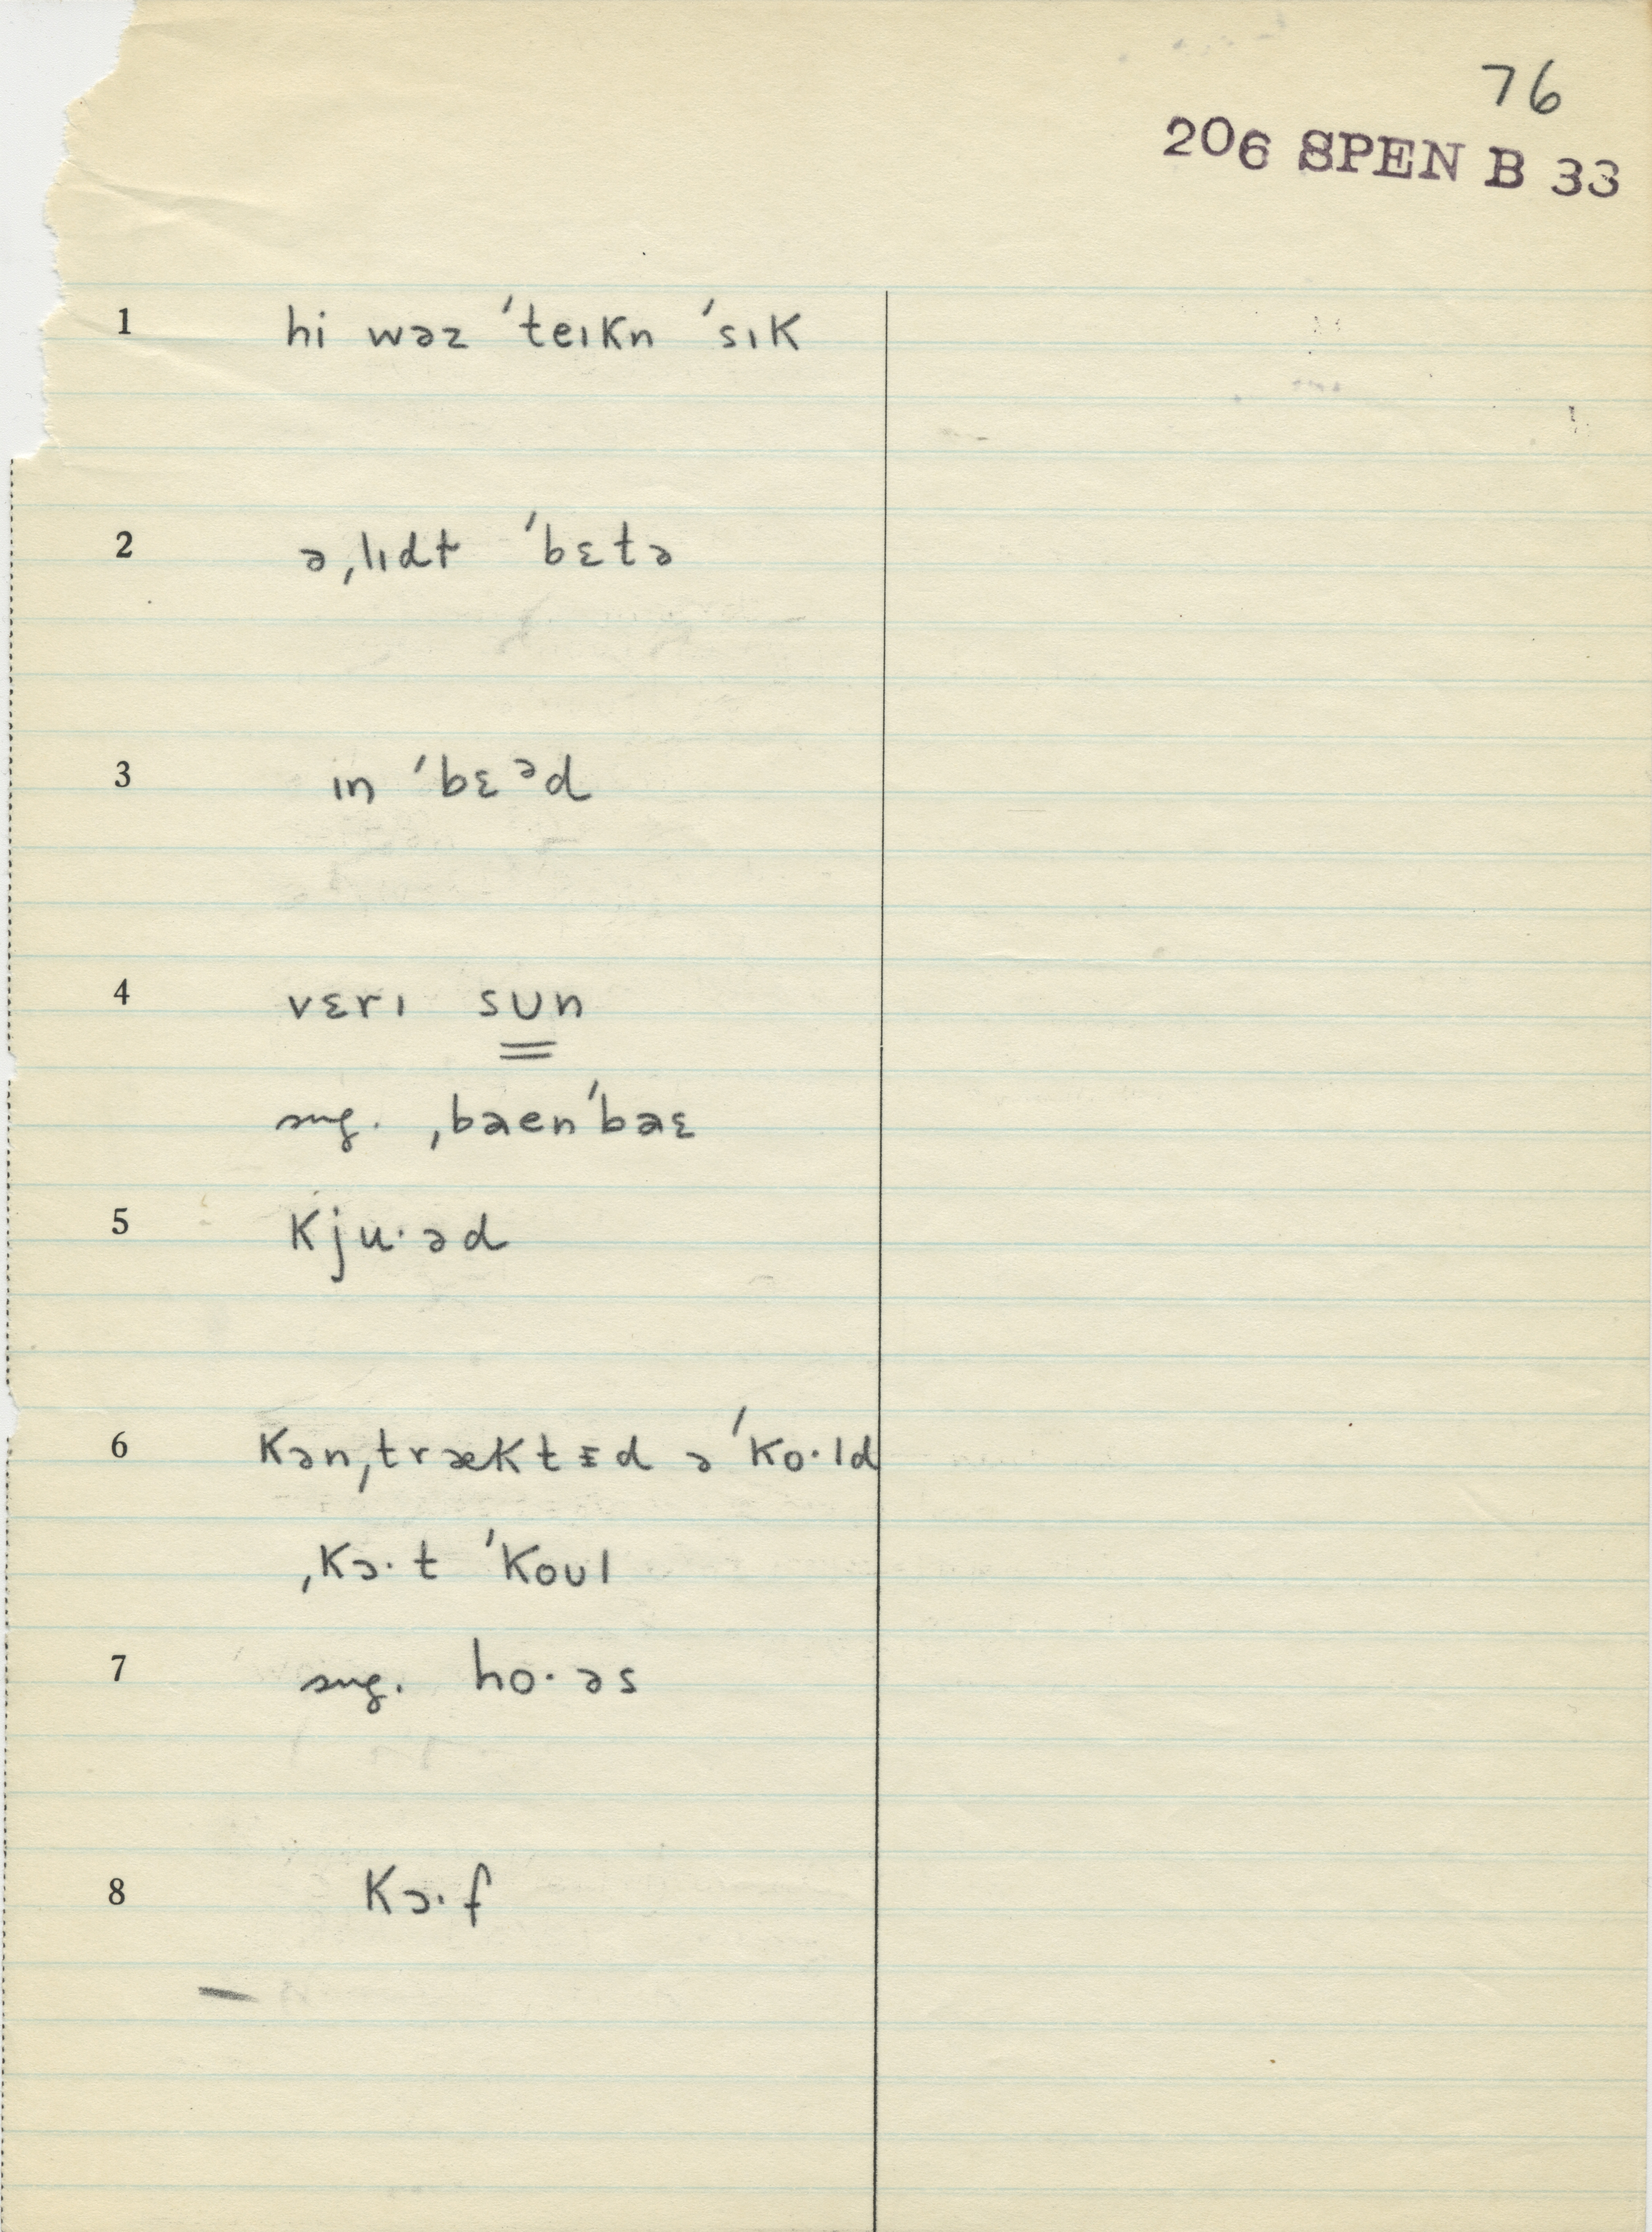 76
206 SPEN B 33
1 hi wəz ˈteɪkn ˈsɪk
2 ə ˌlɪdɫ ˈbɛtə
3 ɪn ˈbɛᵊd
4 vɛrɪ sun
sug. ˌbaen ˈbaɛ
5 kju·əd
6 kən ˌtræktɪ̵d ə ˈko·ld
ˌkɔ·t ˈkoul
7 sug. ho·əs
8 kɔ·f